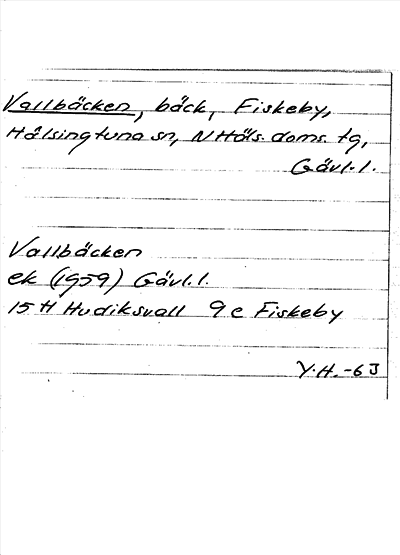 Vallbäcken, bäck, Fiskeby,
Hälsingtuna sn, N Häls. doms. tg,
Gävl. l.
Vallbäcken
ek (1959) Gävl. l.
15 H Hudiksvall 9 e Fiskeby
Y. H. -63